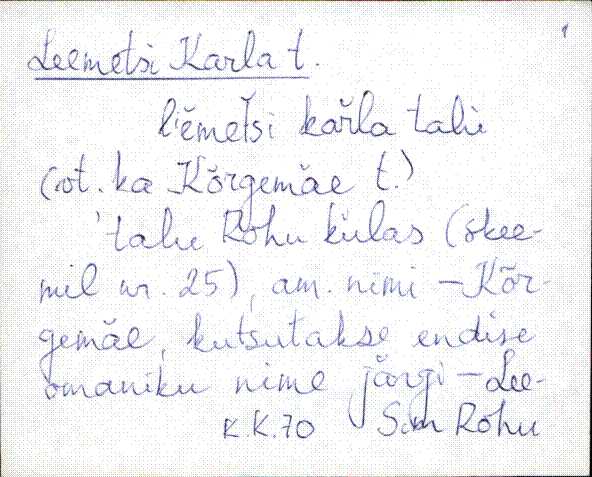 1
Leemetsi Karla t.
liemetsi karla talu
(vt. ka Kõrgemäe t.)
'talu Rohu külas (skee-
mil nr. 25), am. nimi – Kõr-
gemäe, kutsutakse endise
omaniku nime järgi – Lee-
K.K.70 Sim Rohu